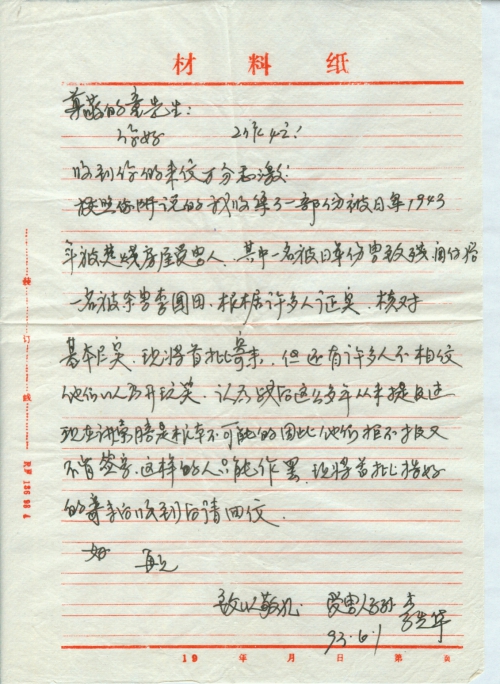 材 料 纸
尊敬的童先生:
你好 工作忙!
收到你的来信十分感激:
按照你所说的我收集了一部份被日军1943
年被焚烧房屋受害人. 其中一名被日军伤害致残
一名被杀害李国田. 根据许多人证实. 核对
基本属实. 现将首批寄来, 但还有许多人不相信
他们以为开玩笑. 认为战后这么多年从未提及过
现在讲索赔是根本不可能的因此他们拒不报又
不肯签字. 这样的人只能作罢. 现将首批填好
的寄来收到后请回信.
再见
致以敬礼 受害人
93.6.1
装 订 线
19 年 月 日 第 页